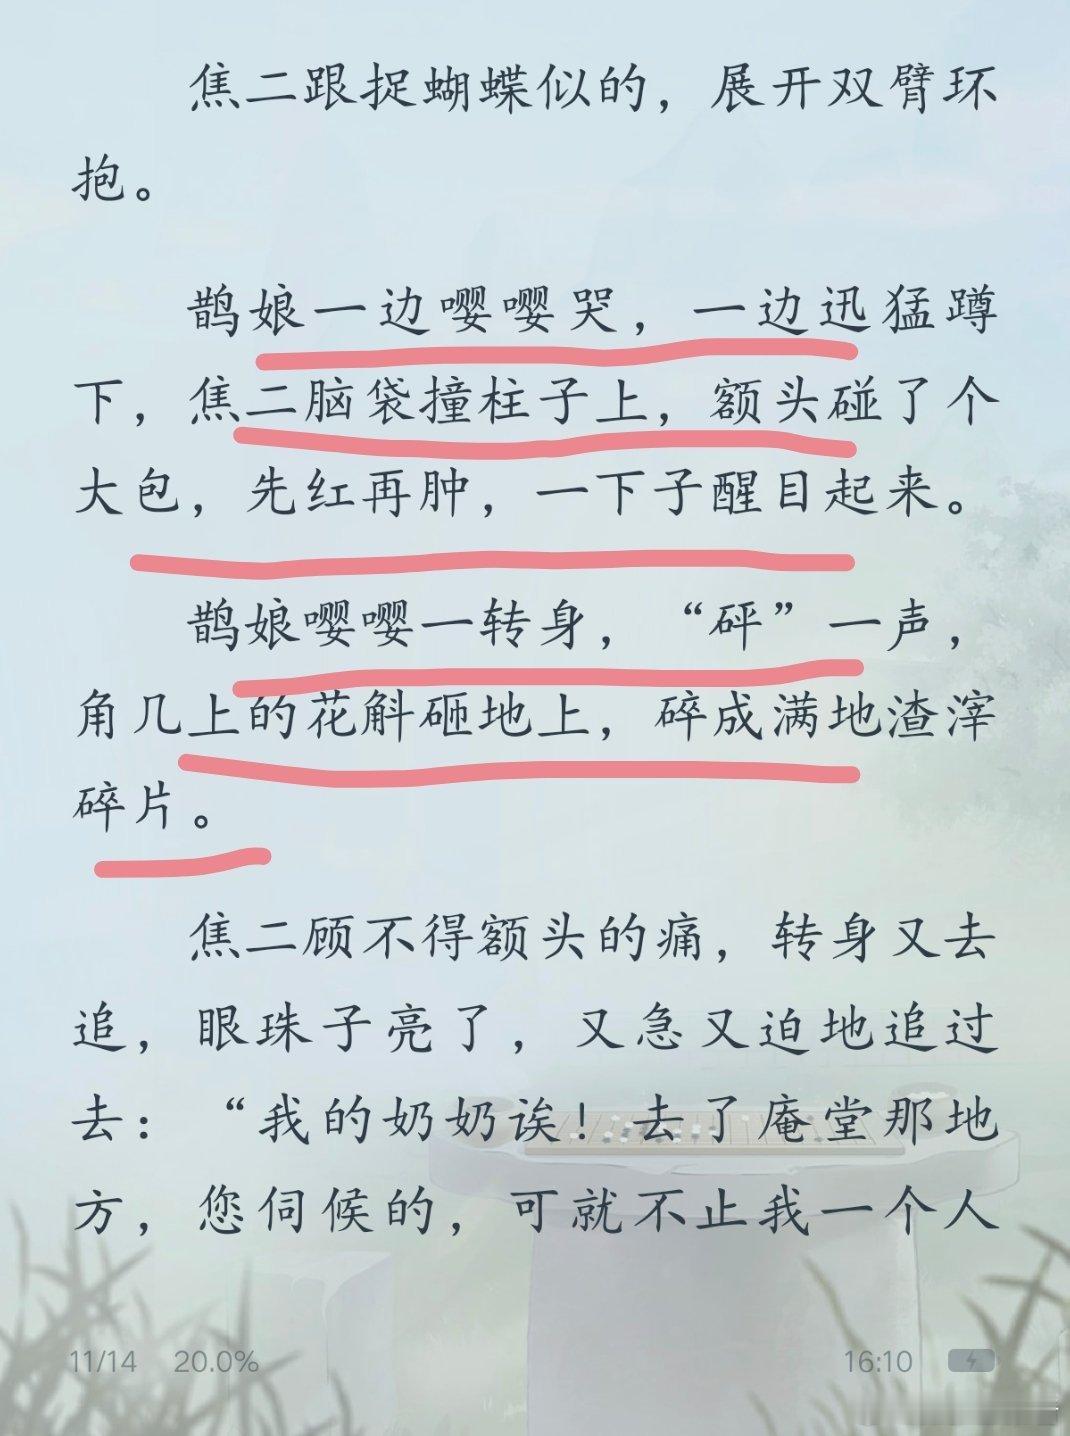 焦二跟捉蝴蝶似的，展开双臂环
抱。
鹊娘一边嘤嘤哭，一边迅猛蹲
下，焦二脑袋撞柱子上，额头碰了个
大包，先红再肿，一下子醒目起来。
鹊娘嘤嘤一转身，“砰”一声，
角几上的花斛砸地上，碎成满地渣滓
碎片。
焦二顾不得额头的痛，转身又去
追，眼珠子亮了，又急又迫地追过
去：“我的奶奶诶！去了庵堂那地
方，您伺候的，可就不止我一个人
11/14 20.0% 16:10